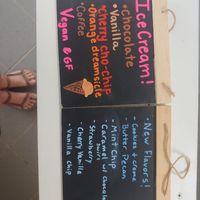 Ice Cream!
• Chocolate
• Vanilla
• Cherry cho-chip
• Orange dreamsicle
• Coffee
Vegan & GF
- New Flavors! -
• Cookies + creme
• Butter Pecan
• Mint Chip
• Caramel w/ chocolate
• Strawberry
• Cherry Vanilla
• Vanilla Chip